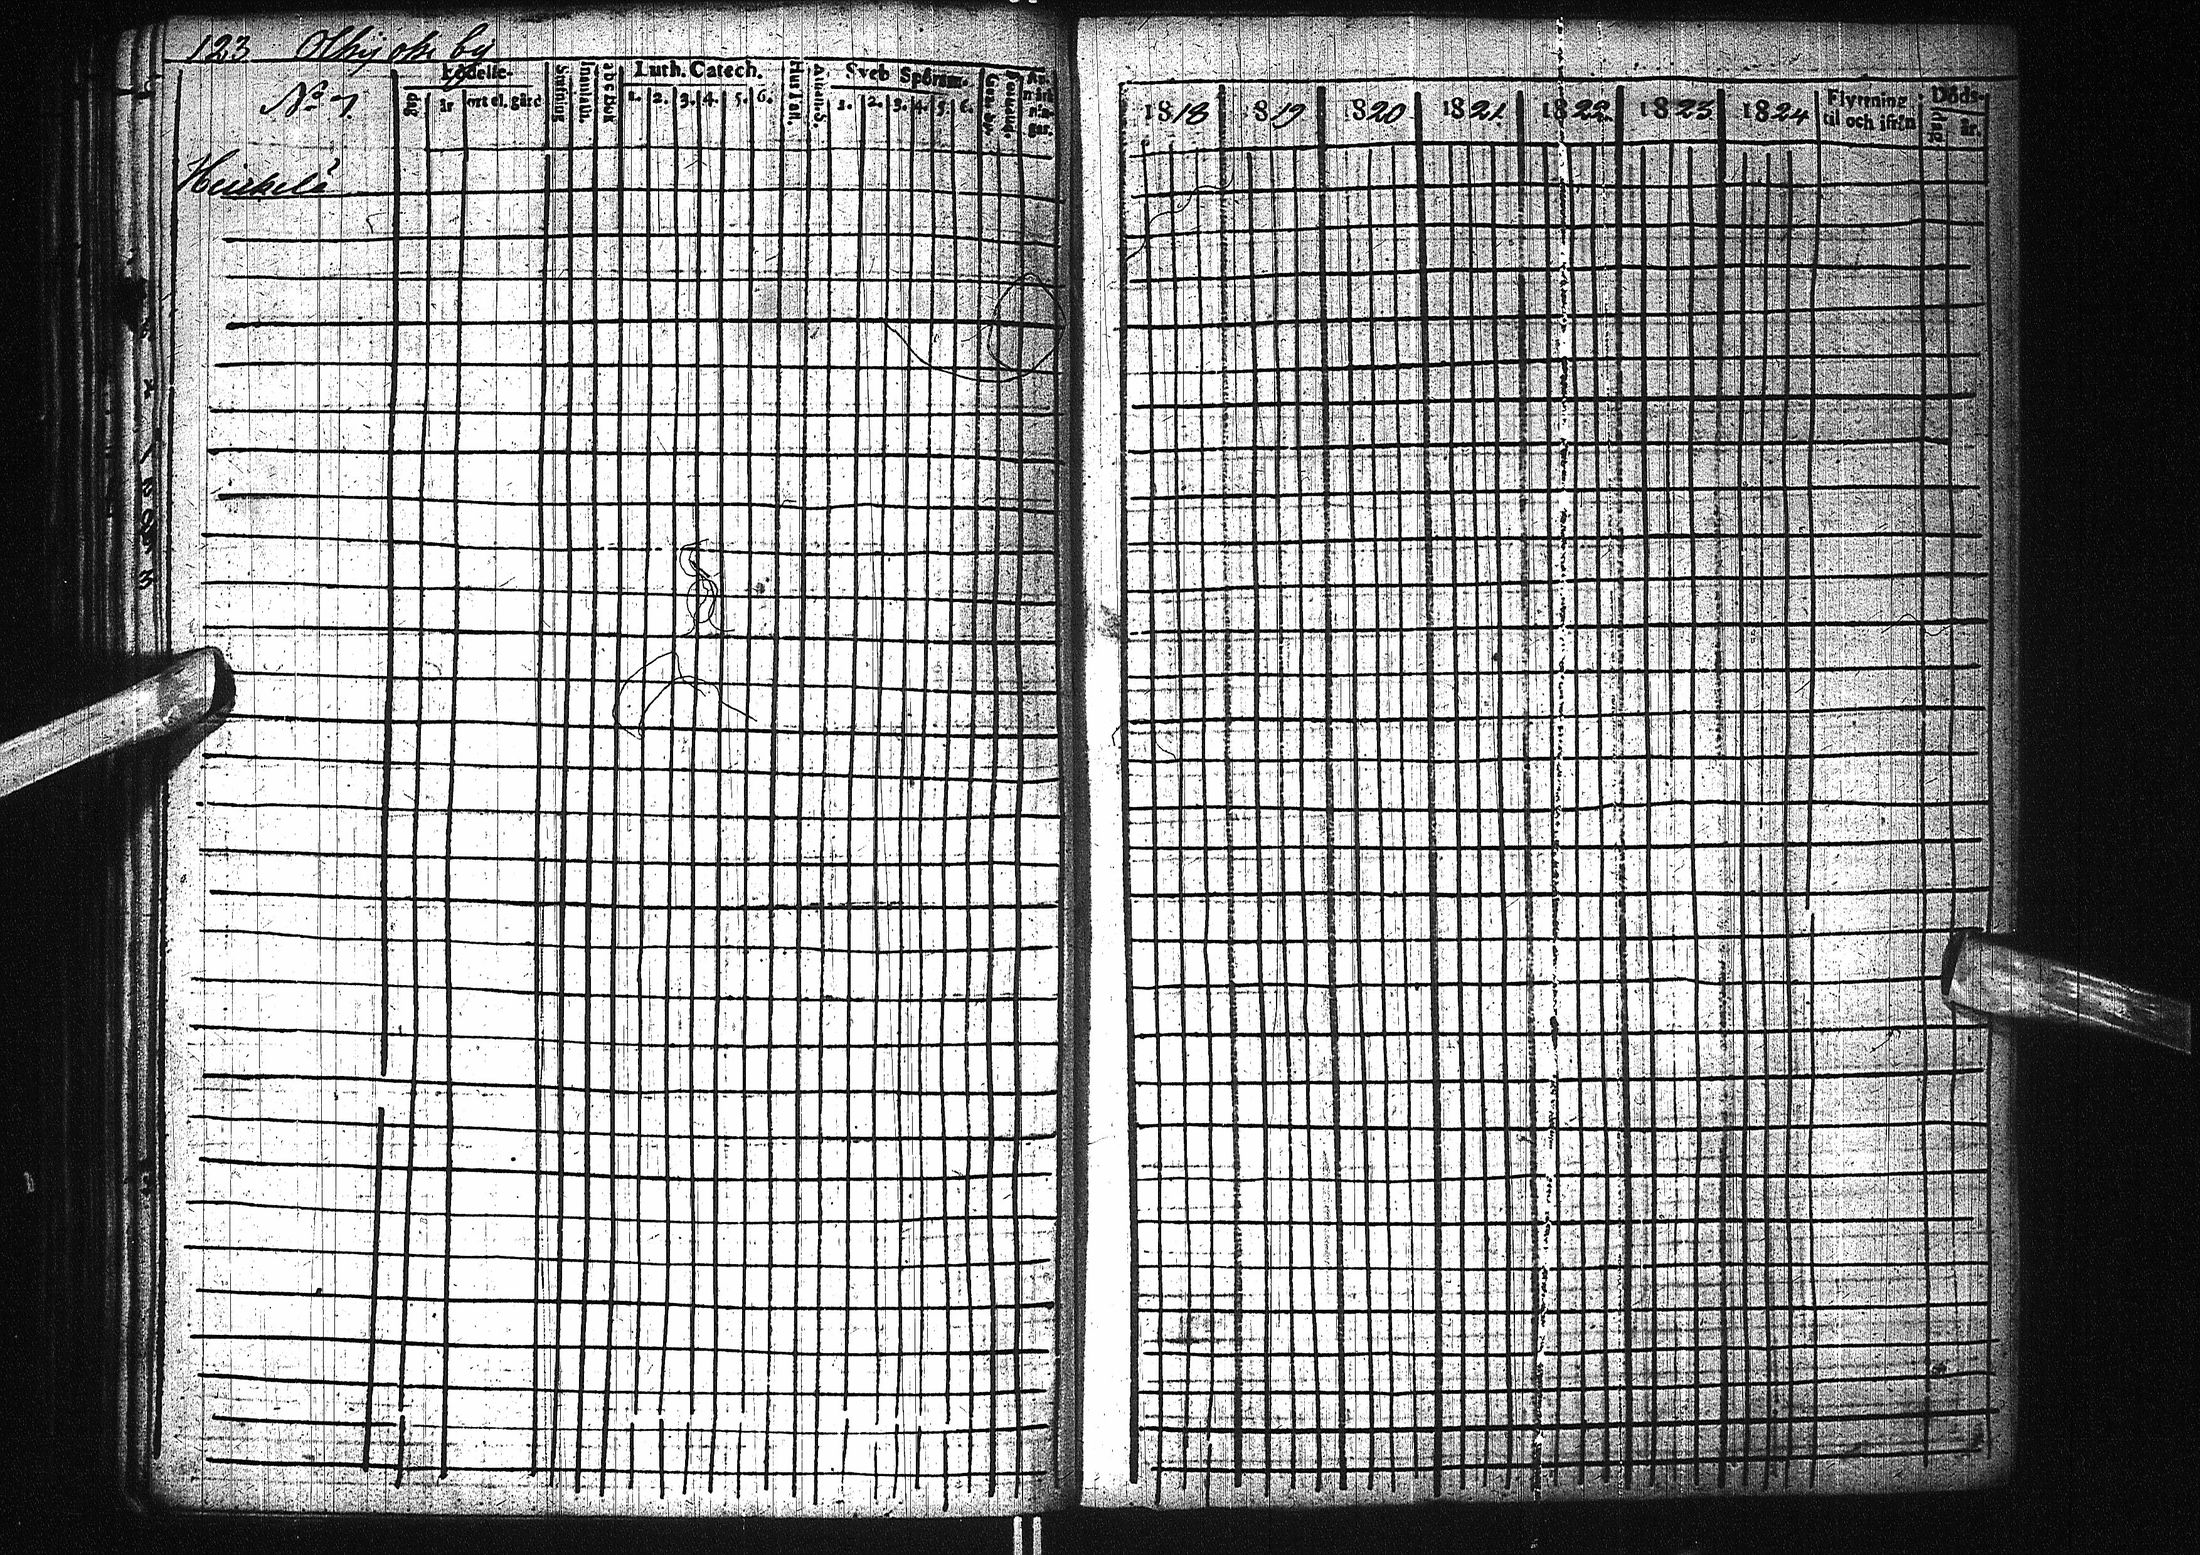 123 by
No 7.
Födelse-
dag
år
ort el. gård
Smittning
Innanläsn.
a b c Bok
Luth. Catech.
1. 2. 3. 4. 5. 6.
Hustafl.
Athan. S.
Sveb Spörsm.
1. 2. 3. 4. 5. 6.
Heikelä
1818 1819 1820 1821 1822 1823 1824
Flyttning
til och ifrån
Döds-
dag
år.